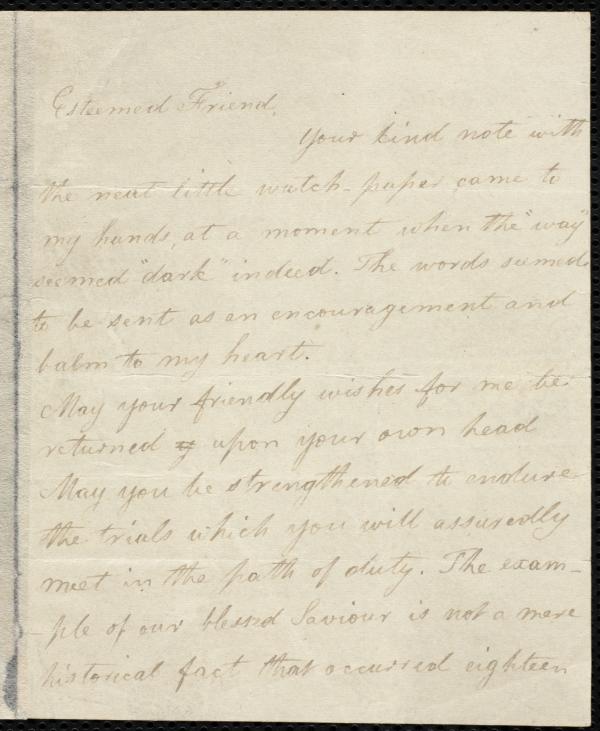 Esteemed Friend,
Your kind note with
the neat little watch-paper came to
my hands, at a moment when the "way"
seemed "dark" indeed. The words seemed
to be sent as an encouragement and
balm to my heart.
May your friendly wishes for me be
returned upon your own head
May you be strengthened to endure
the trials which you will assuredly
meet in the path of duty. The exam-
ple of our blessed Saviour is not a mere
historical fact that occurred eighteen